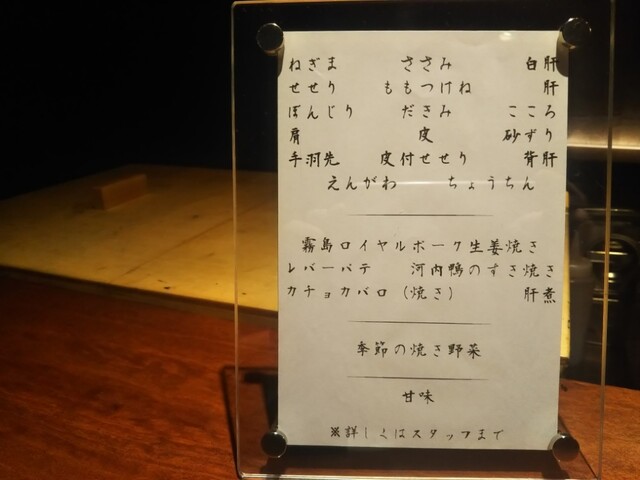 ねぎま ささみ 白肝
せせり ももつけね 肝
ぼんじり だきみ こころ
肩 皮 砂ずり
手羽先 皮付せせり 背肝
えんがわ ちょうちん
霧島ロイヤルポーク生姜焼き
レバーパテ 河内鴨のすき焼き
カチョカバロ（焼き） 肝煮
季節の焼き野菜
甘味
※詳しくはスタッフまで